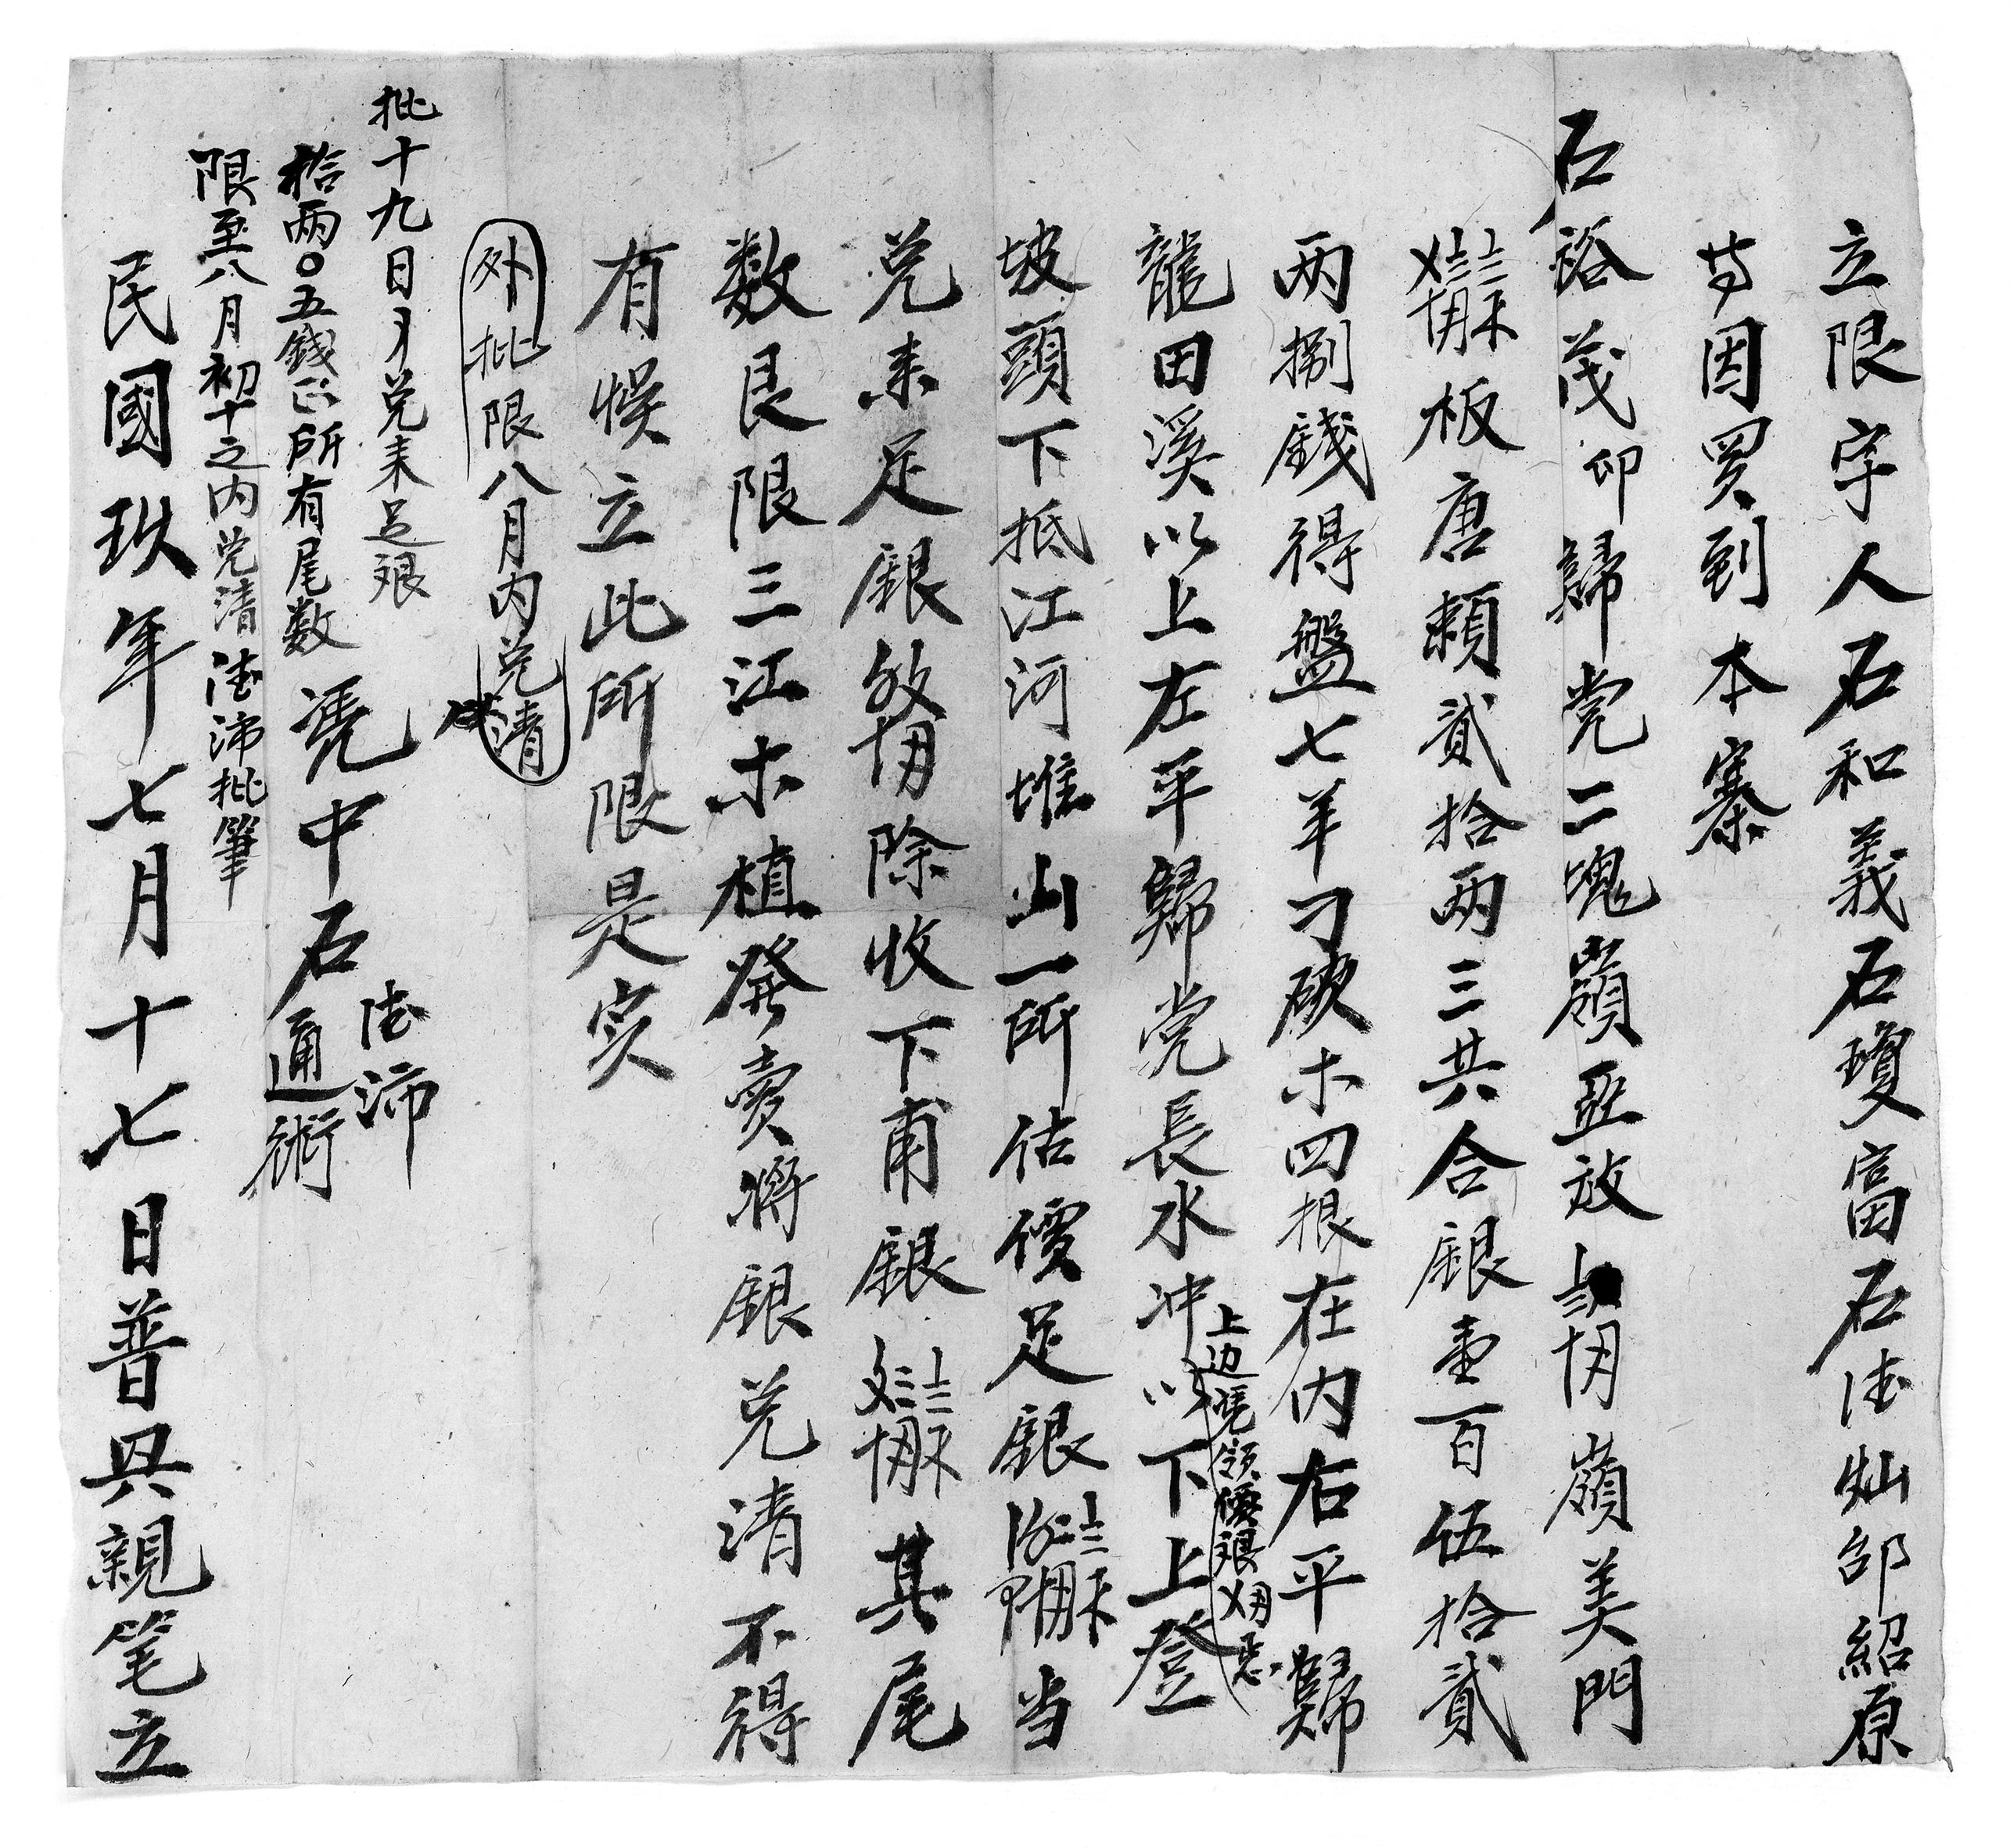 立限字人石和義石瓊富石法灿邰紹原
等因買到本寨
石裕茂卬歸党二塊嶺亚放嶺美門
板唐賴貳拾两三共合銀壹百伍拾貳
两捌錢得盤七羊刁破木四根在内右平歸
龍田溪以上左平歸党長水冲以下上登
上边凴領價銀
坡頭下抵江河堆山一所估價足銀当
兑来足銀除收下甫銀其尾
数艮限三江木植發賣將銀兑清不得
有悮立此所限是实
外批限八月内兑清
批十九日兑来足銀
拾两〇五錢正所有尾数
限至八月初十之内兑清法沛批筆
凴中石法沛
通術
民國玖年七月十七日普興親笔立